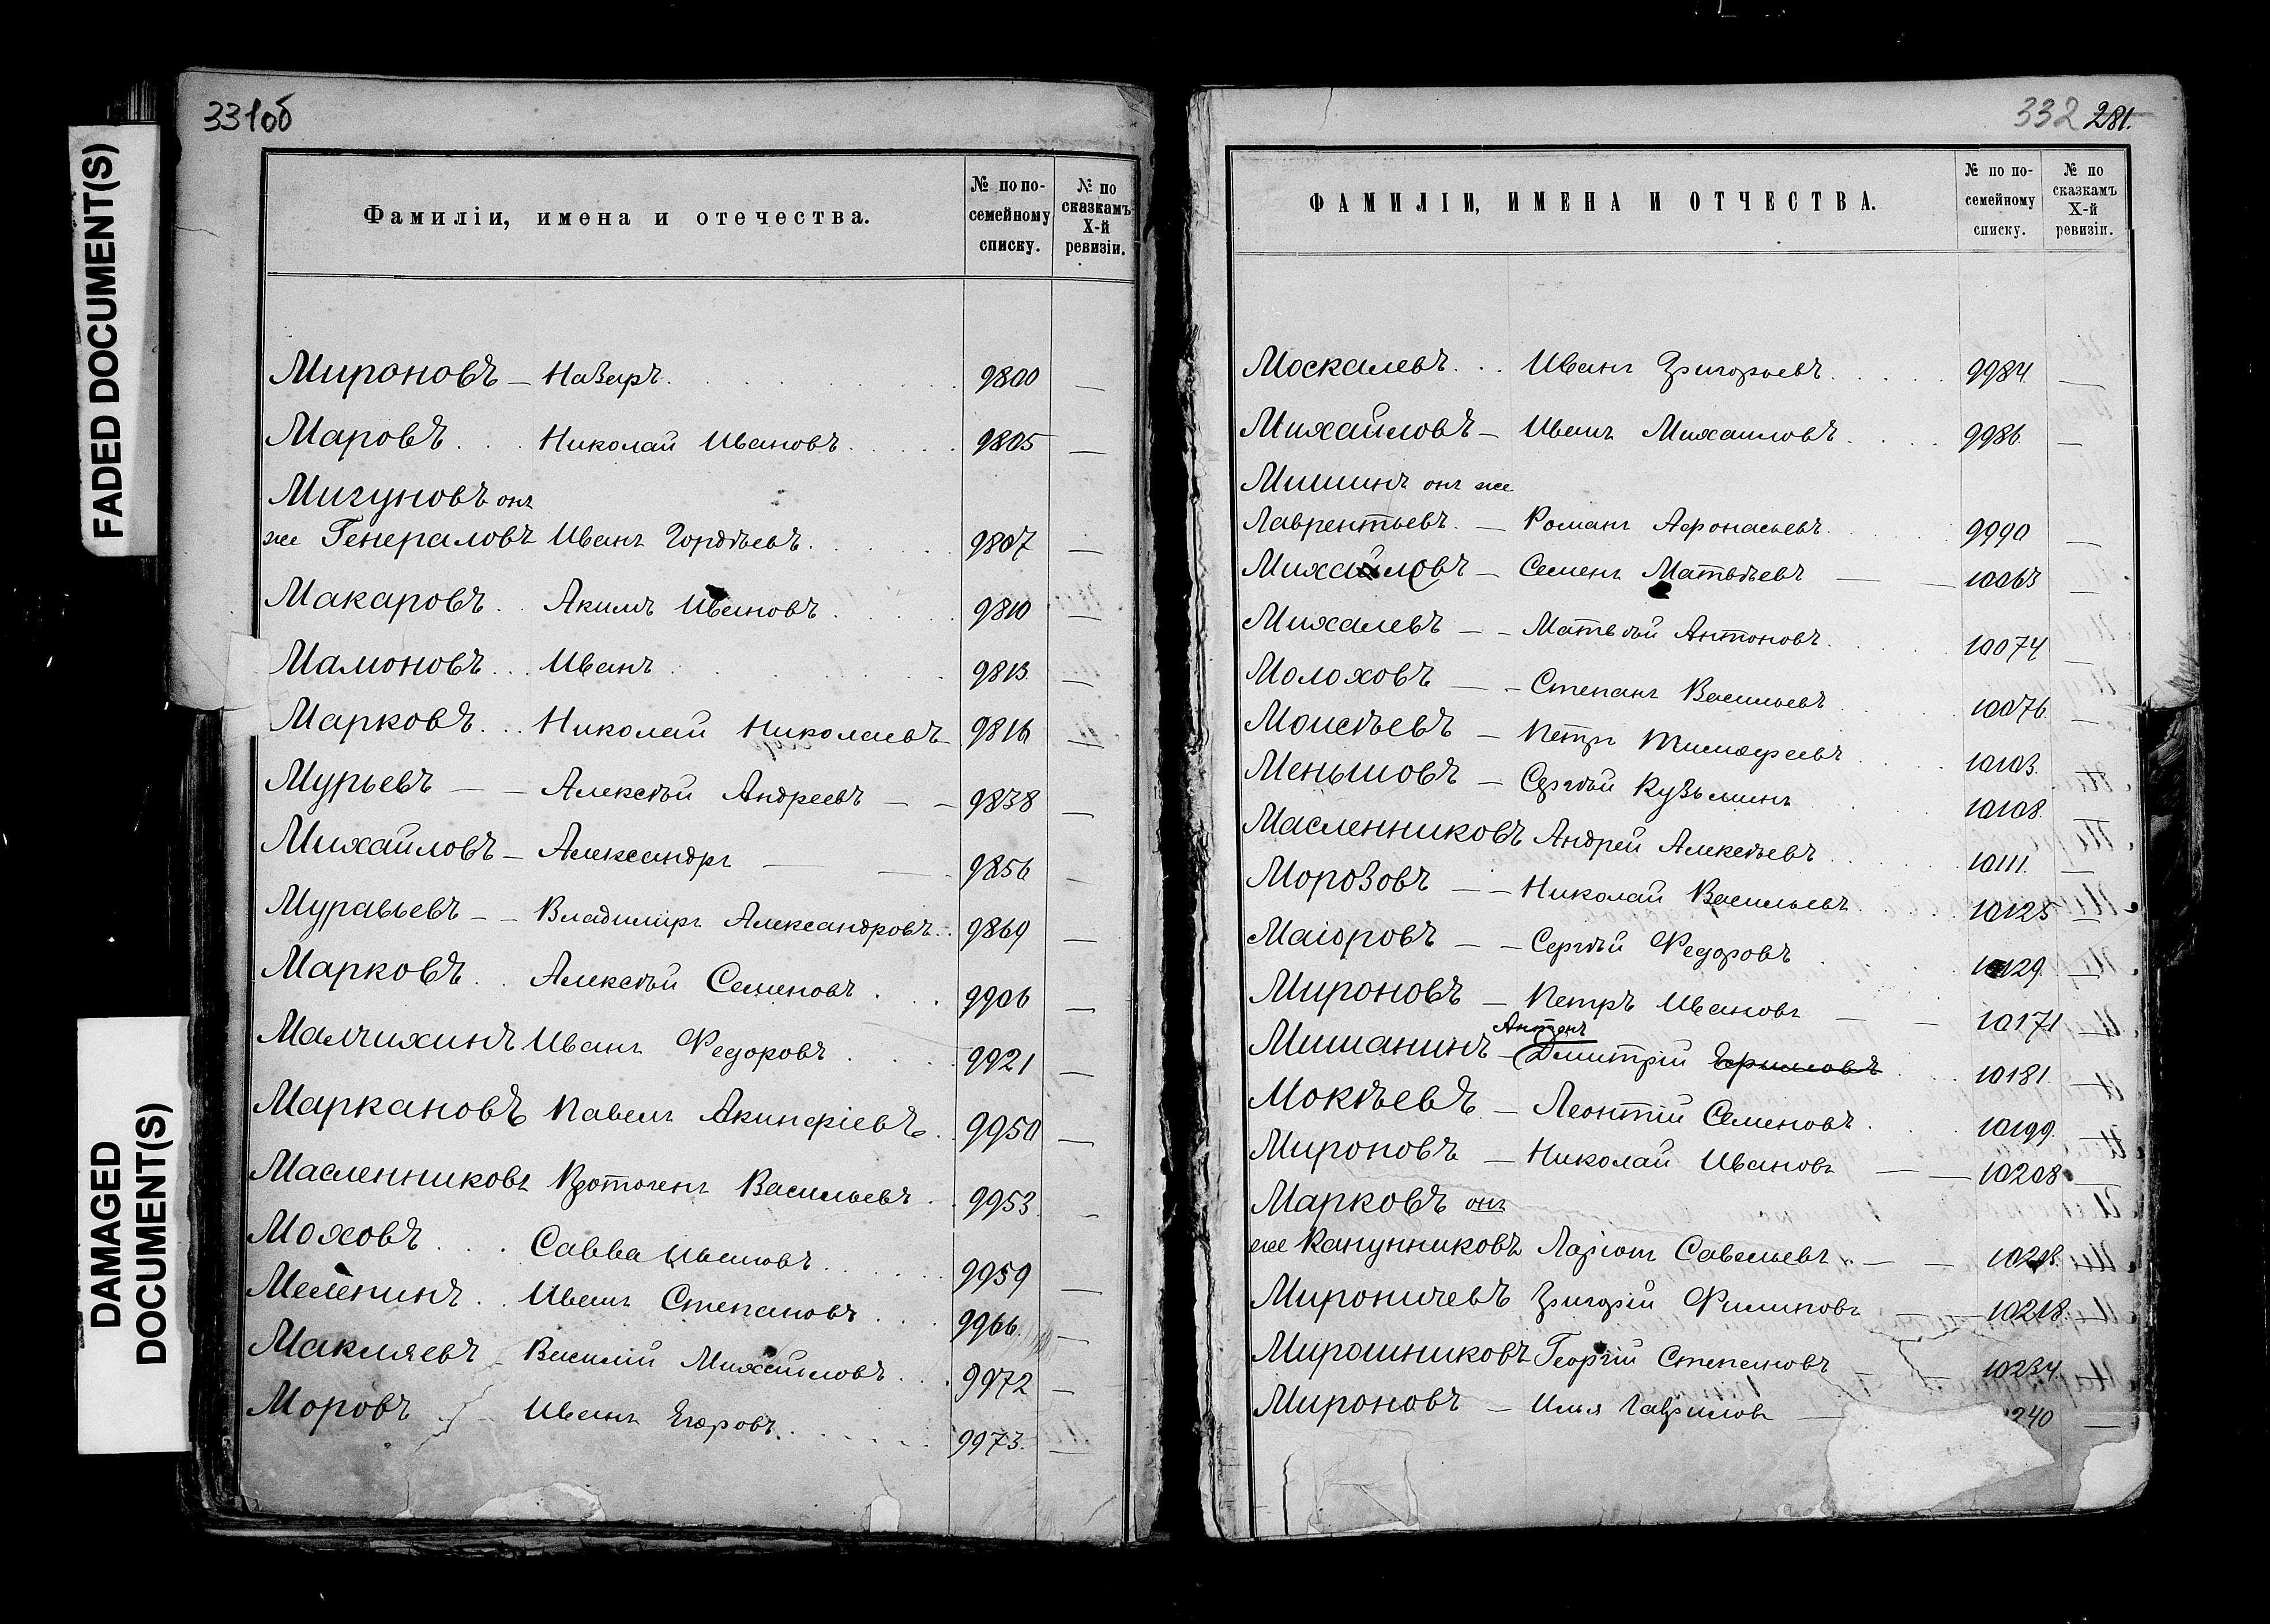 FADED DOCUMENT(S)
DAMAGED
DOCUMENT(S)
331об
Фамиліи, имена и отечества.
№ по по-
семейному
списку.
№ по
сказкамъ
X-й
ревизіи.
Мироновъ — Назаръ. 9800 —
Маровъ. Николай Ивановъ. 9805 —
Мигуновъ онъ
же Генераловъ Иванъ Гордѣевъ. 9807 —
Макаровъ. Акимъ Ивановъ. 9810 —
Мамоновъ. Иванъ. 9813. —
Марковъ. Николай Николаевъ 9816 —
Мурьевъ — — Алексѣй Андреевъ — — 9838 —
Михайловъ — Александръ — — 9856 —
Муравьевъ — — Владиміръ Александровъ. 9869 —
Марковъ. Алексѣй Семеновъ. 9906 —
Малчихинъ Иванъ Федоровъ. 9921 —
Маркановъ Павелъ Акинфіевъ. 9950 —
Масленниковъ Васильевъ. 9953. —
Моховъ. Савва Ивановъ. 9959 —
Меленинъ. Иванъ Степановъ. 9966. —
Макляевъ — Василій Михайловъ. 9972 —
Моровъ — Иванъ Егоровъ. 9973. —
332 281.
ФАМИЛІИ, ИМЕНА И ОТЧЕСТВА.
№ по по-
семейному
списку.
№ по
сказкамъ
X-й
ревизіи.
Москалевъ. Иванъ Григорьевъ. 9984. —
Михайловъ — Иванъ Михаиловъ. 9986. —
Мишинъ онъ же
Лаврентьевъ. — Романъ Афонасьевъ. 9990 —
Михайловъ — Семенъ Матвѣевъ — — 10063 —
Михалевъ — — Матвѣй Антоновъ. 10074 —
Молоховъ — — Степанъ Васильевъ. 10076. —
Моисѣевъ — Петръ Тимофеевъ. 10103.
Меньшовъ — Сергѣй Кузьминъ. 10108.
Масленниковъ Андрей Алексѣевъ. 10111. —
Морозовъ — — Николай Васильевъ. 10125 —
Маіоровъ — — Сергѣй Федоровъ. 10129. —
Мироновъ — Петръ Ивановъ — — 10171
Антонъ
Мишанинъ — Дмитрій Ефимовъ. 10181.
Мокѣевъ. — Леонтій Семеновъ. 10199.
Мироновъ — Николай Ивановъ — — 10208
Марковъ онъ
же Канунниковъ Ларіонъ Савельевъ. — —
Мироничевъ Григорій Филиповъ — — 10218.
Мирошниковъ Георгій Степановъ — — 10234.
Мироновъ — Илья Гавриловъ — 240 —